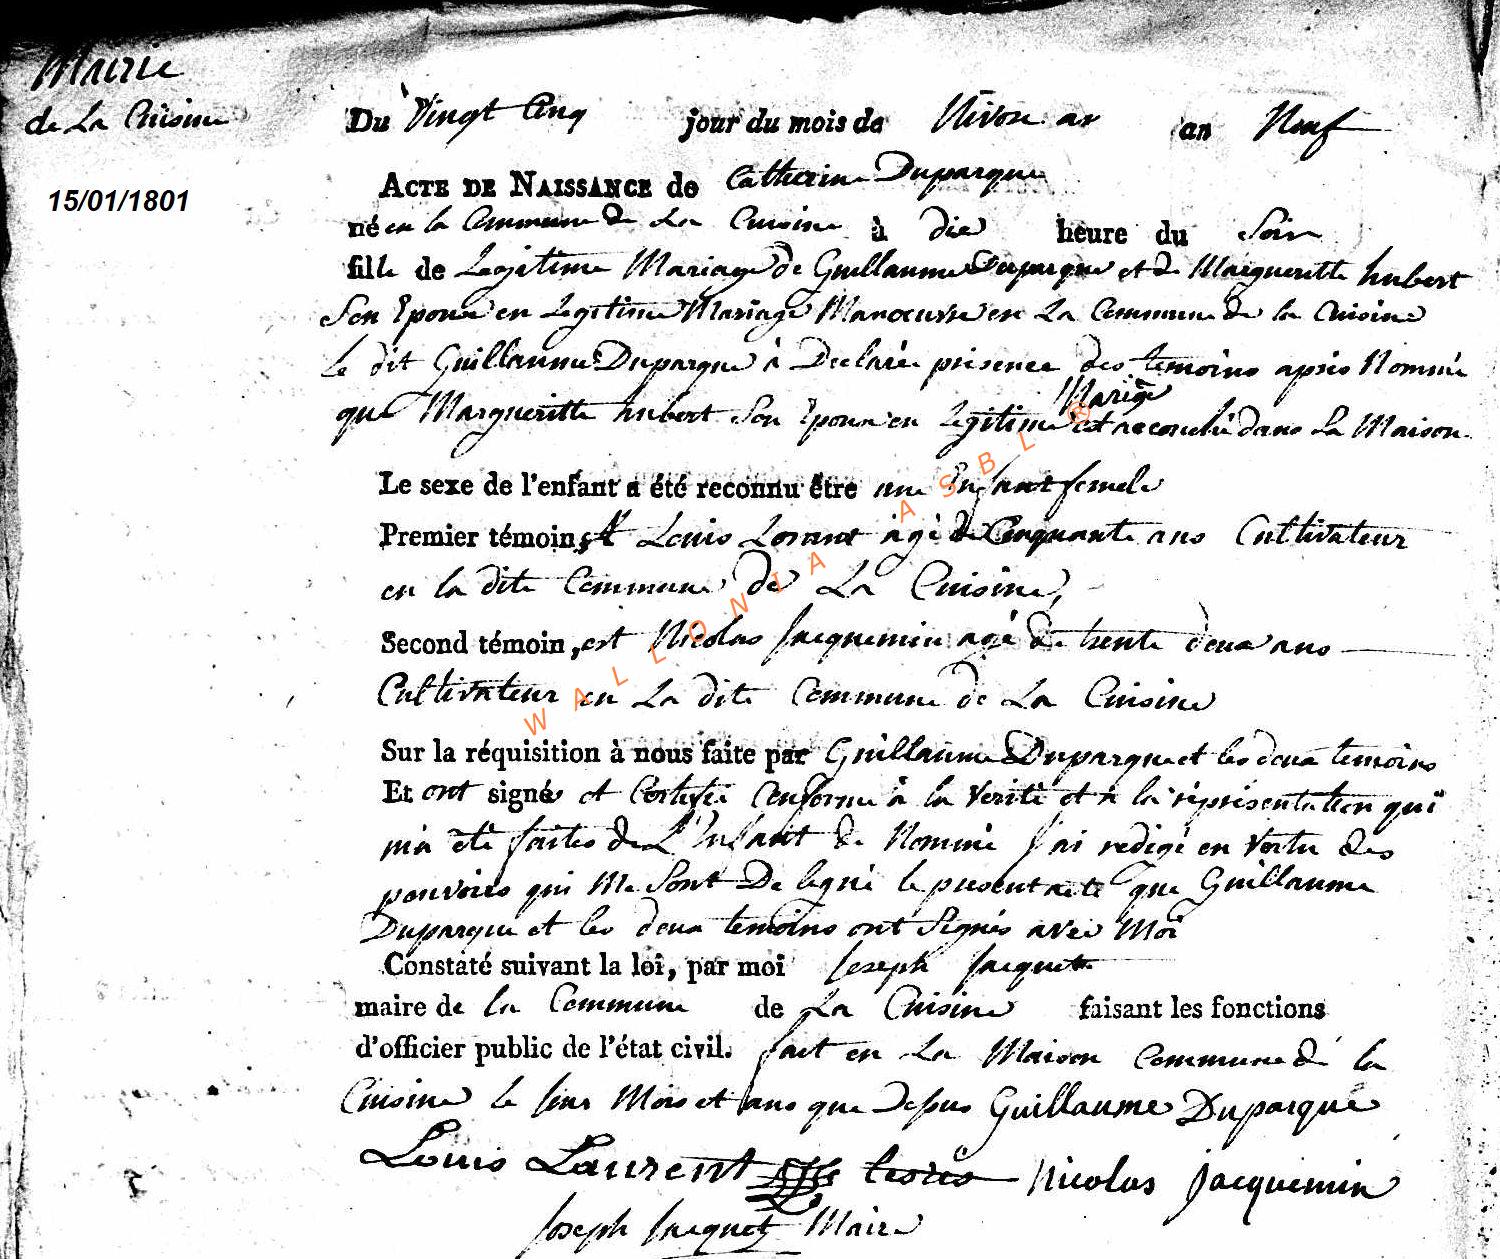 Mairie
de La Cuisine
15/01/1801
Du Vingt Cinq jour du mois de Nivose an Neuf
ACTE DE NAISSANCE de Catherine Duparque
né en la Commune de La Cuisine à dix heure du Soir
fille de Legitime Mariage de Guillaume Duparque et de Margueritte hubert
Son Epouse en Legitime Mariage Manoeuvre en La Commune de la Cuisine
Le dit Guillaume Duparque à Declarée présence des temoins après Nommé
que Margueritte hubert Son Epouse en Legitime Mariage est accouchée dans La Maison
Le sexe de l'enfant a été reconnu être une Enfant femele
Premier témoin, est Louis Lorant agé de Cinquante ans Cultivateur
en la dite Commune de La Cuisine,
Second témoin, est Nicolas Jacquemin agé de trente deux ans
Cultivateur en La dite Commune de La Cuisine
Sur la réquisition à nous faite par Guillaume Duparque et les deux temoins
Et ont signé et Certifié Conforme à la Verité et à la réprésentation qui
m'a été faites de L'Enfant de Nommé J'ai redigé en Vertu des
pouvoirs qui Me Sont Delegué le present acte que Guillaume
Duparque et les deux temoins ont Signés avec Moi
Constaté suivant la loi, par moi Joseph Jacquet
maire de la Commune de La Cuisine faisant les fonctions
d'officier public de l'état civil. fait en La Maison Commune de la
Cuisine le Jour Mois et ans que Desus Guillaume Duparque
Louis Laurent Nicolas Jacquemin
Joseph Jacquet Maire
WALLONIA ASBL ®